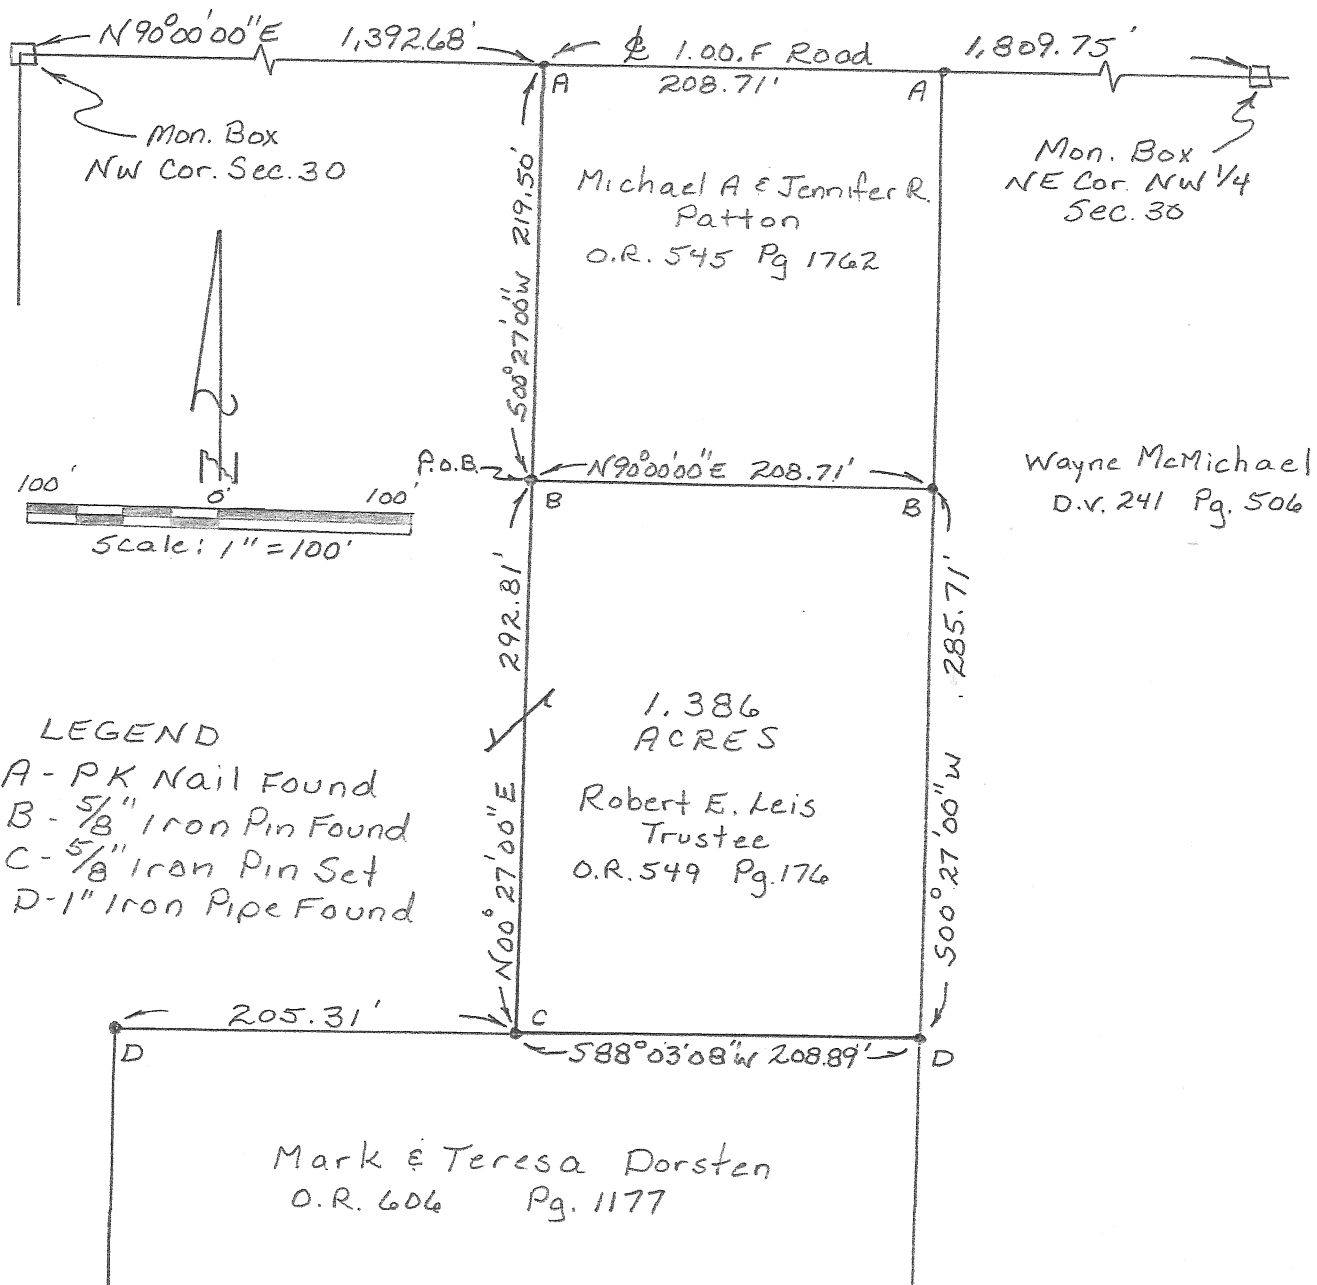 N 90°00'00"E 1,392.68'
℄ 1.00.F Road
208.71'
1,809.75'
A
A
Mon. Box
NW Cor. Sec. 30
Mon. Box
NE Cor. NW 1/4
Sec. 30
Michael A & Jennifer R.
Patton
O.R. 545 Pg 1762
S00°27'00"W 219.50'
N
P.O.B.
N90°00'00"E 208.71'
B
B
Wayne McMichael
D.V. 241 Pg. 506
100' 0' 100'
Scale: 1" = 100'
292.81'
N00°27'00"E
285.71'
S00°27'00"W
1.386
ACRES
Robert E. Leis
Trustee
O.R. 549 Pg. 176
LEGEND
A - PK Nail Found
B - 5/8" Iron Pin Found
C - 5/8" Iron Pin Set
D - 1" Iron Pipe Found
205.31'
C
D
S88°03'08"W 208.89'
D
Mark & Teresa Dorsten
O.R. 606 Pg. 1177